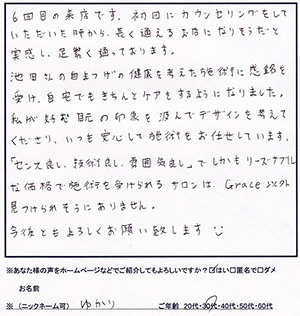 6回目の来店です。初回にカウンセリングをして
いただいた時から、長く通えるお店になりそうだと
実感し、足繁く通っております。
池田さんの自まつげの健康を考えた施術に感銘を
受け、自宅でもきちんとケアをするようになりました。
私が好む目元の印象を汲んでデザインを考えて
くださり、いつも安心して施術をお任せしています。
「センス良し、技術良し、雰囲気良し」でしかもリーズナブル
な価格で施術を受けられるサロンは、Grace以外
見つけられそうにありません。
今後ともよろしくお願い致します
※あなた様の声をホームページなどでご紹介してもよろしいですか？☑はい□匿名で□ダメ
お名前
※（ニックネーム可） ゆかり ご年齢 20代・30代・40代・50代・60代